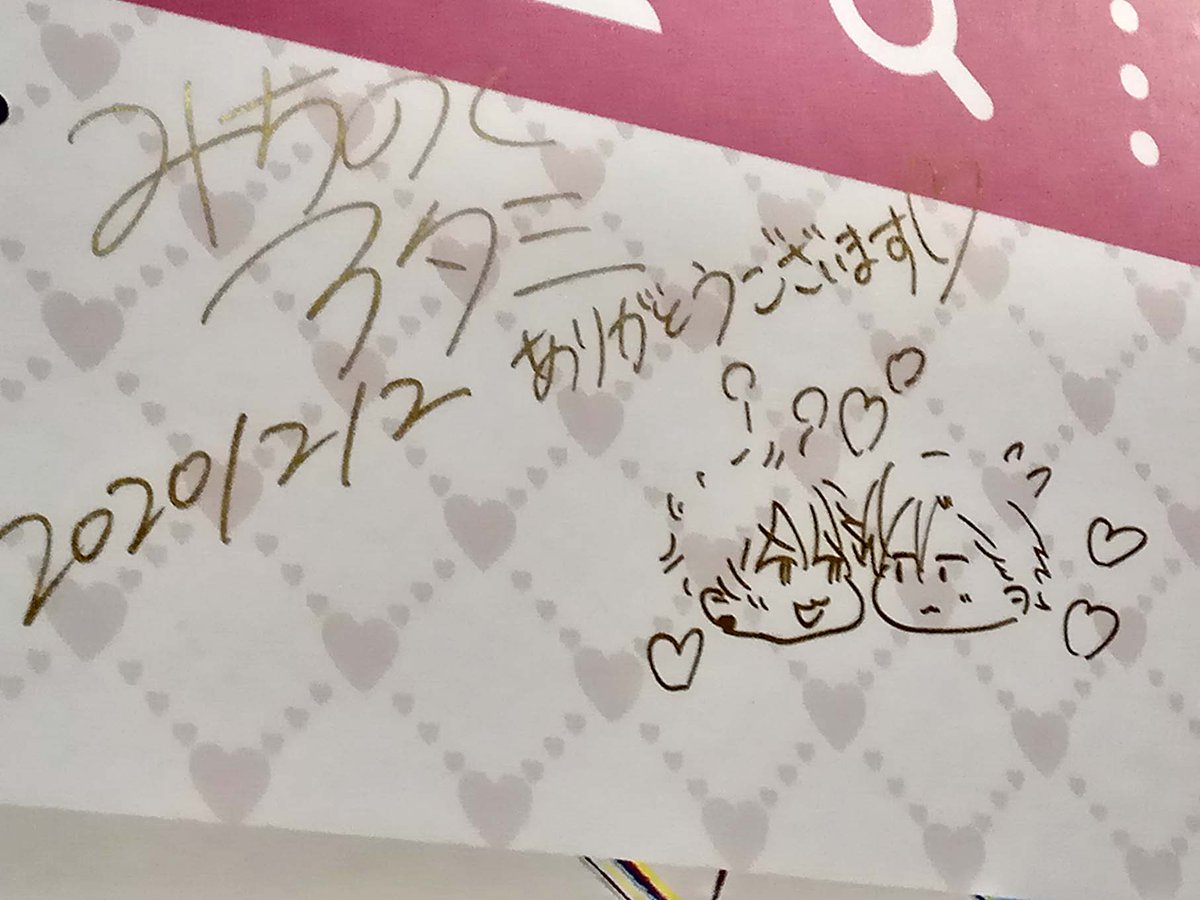 みちのく
アタミ
ありがとうございます!!
2020/2/2